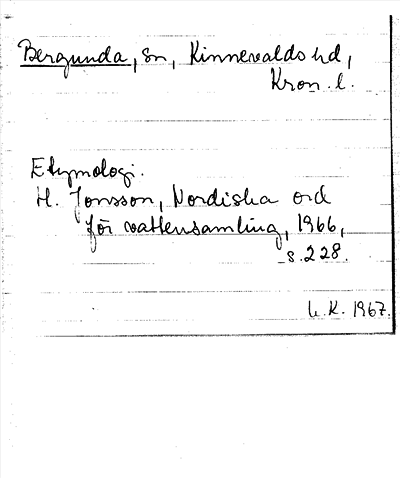 Bergunda, sn, Kinnevalds hd,
Kron. l.
Etymologi.
H. Jonsson, Nordiska ord
för vattensamling, 1966,
s. 228.
L. K. 1967.